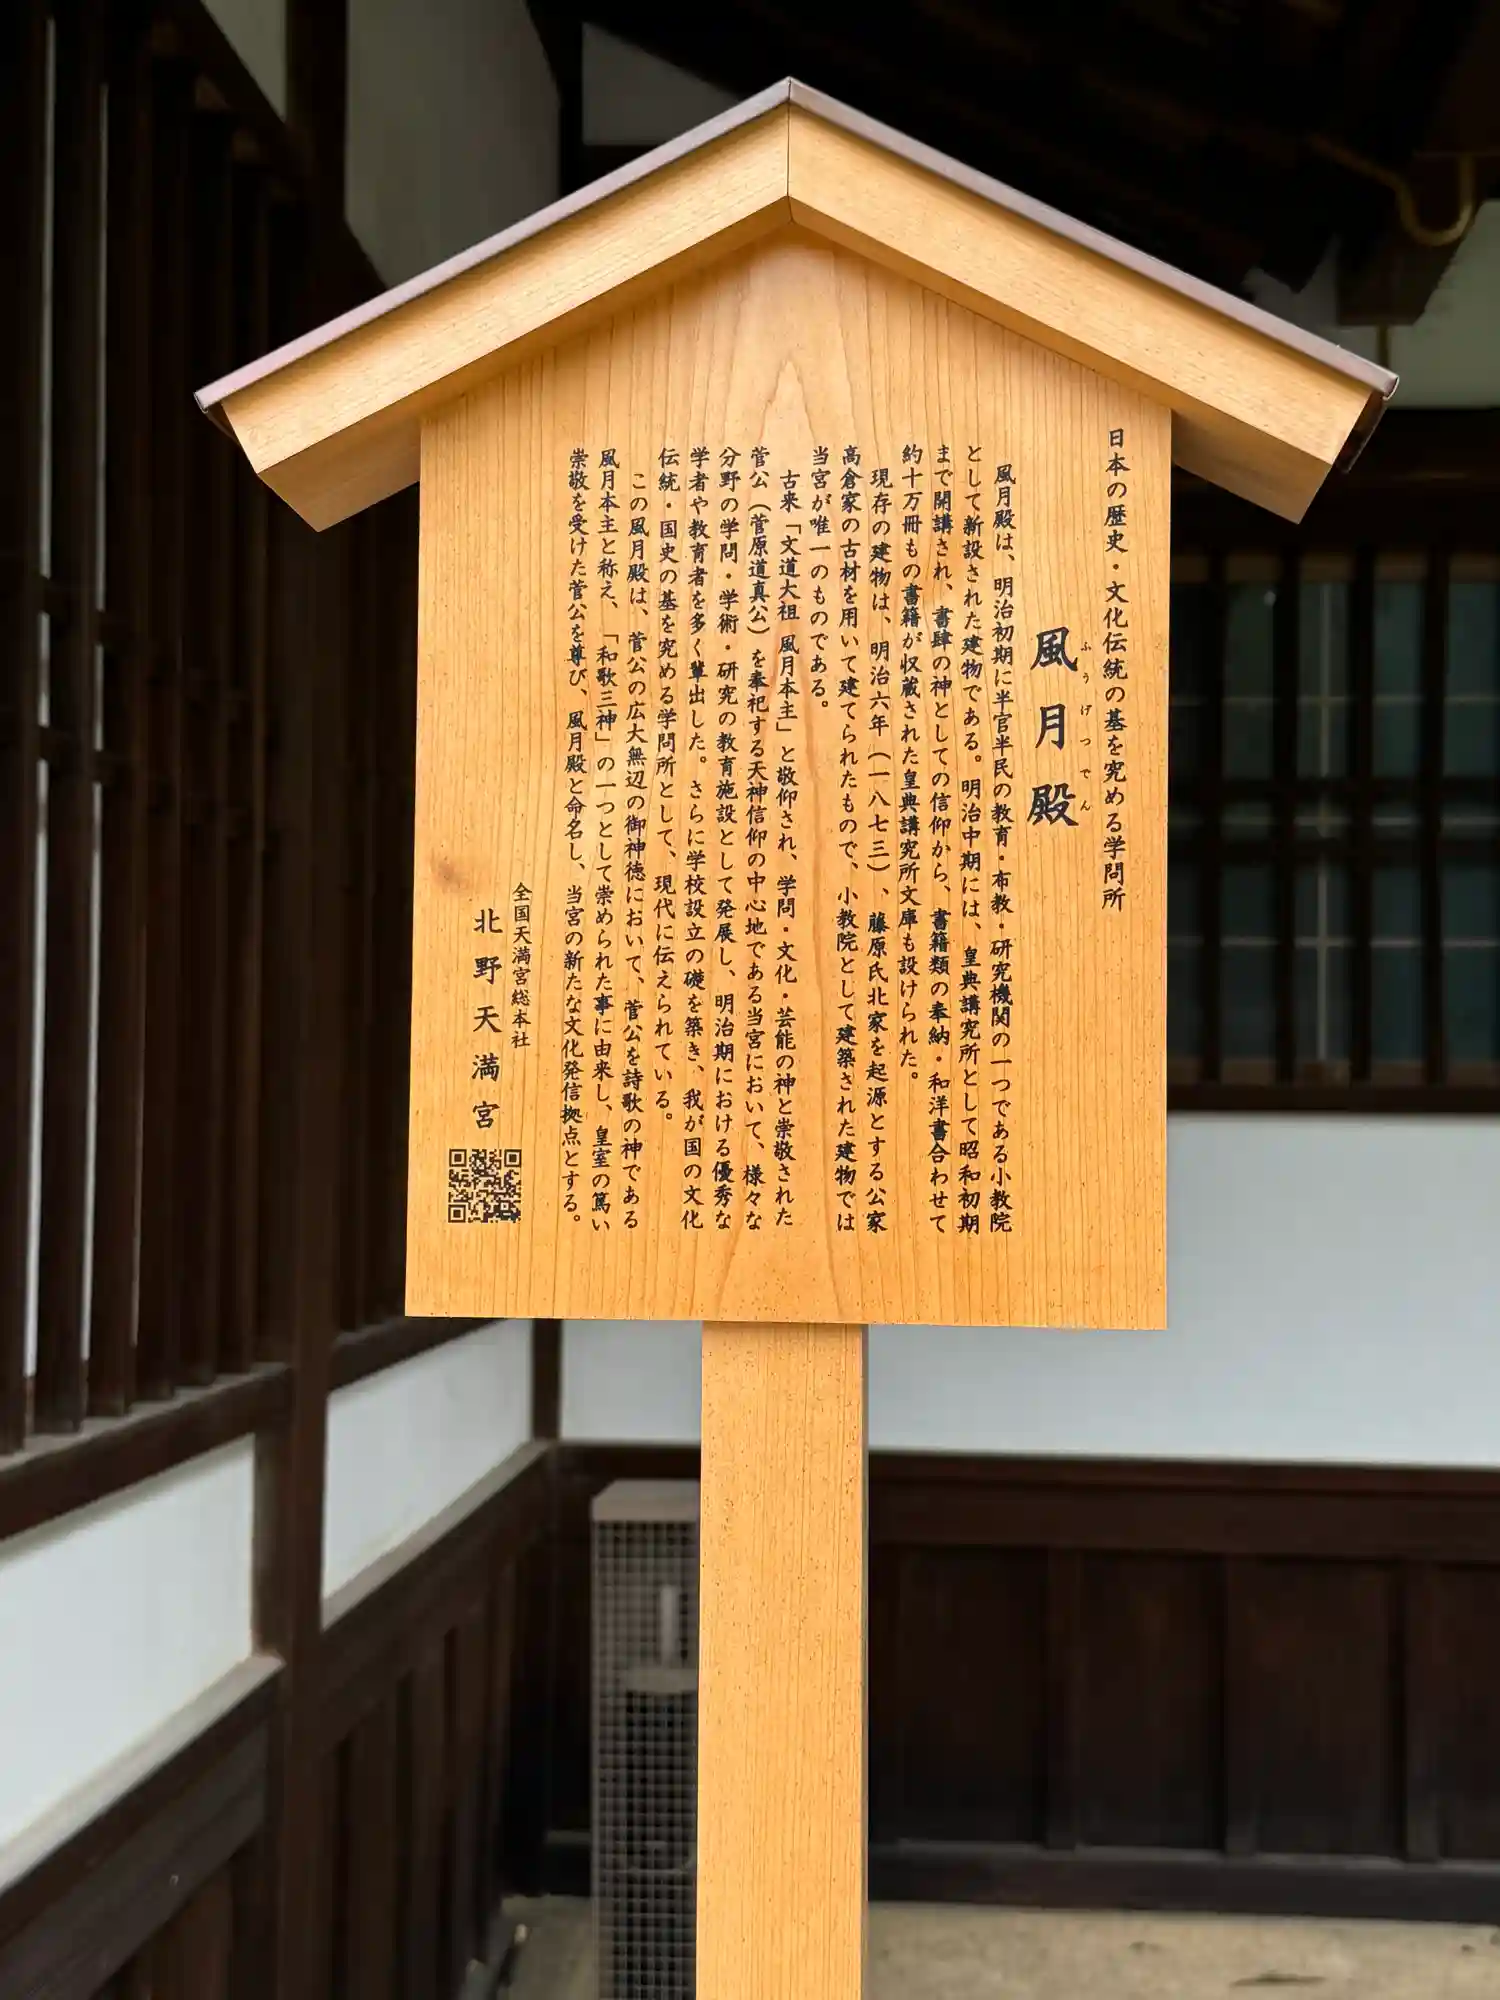 日本の歴史・文化伝統の基を究める学問所
風月殿
ふうげつでん
風月殿は、明治初期に半官半民の教育・布教・研究機関の一つである小教院
として新設された建物である。明治中期には、皇典講究所として昭和初期
まで開講され、書肆の神としての信仰から、書籍類の奉納・和洋書合わせて
約十万冊もの書籍が収蔵された皇典講究所文庫も設けられた。
現存の建物は、明治六年（一八七三）、藤原氏北家を起源とする公家
高倉家の古材を用いて建てられたもので、小教院として建築された建物では
当宮が唯一のものである。
古来「文道大祖 風月本主」と敬仰され、学問・文化・芸能の神と崇敬された
菅公（菅原道真公）を奉祀する天神信仰の中心地である当宮において、様々な
分野の学問・学術・研究の教育施設として発展し、明治期における優秀な
学者や教育者を多く輩出した。さらに学校設立の礎を築き、我が国の文化
伝統・国史の基を究める学問所として、現代に伝えられている。
この風月殿は、菅公の広大無辺の御神徳において、菅公を詩歌の神である
風月本主と称え、「和歌三神」の一つとして崇められた事に由来し、皇室の篤い
崇敬を受けた菅公を尊び、風月殿と命名し、当宮の新たな文化発信拠点とする。
全国天満宮総本社
北野天満宮